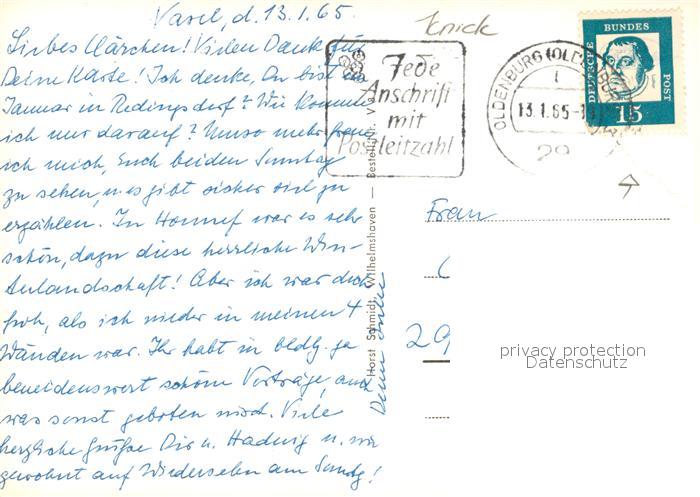 Varel, d. 13.1.65.
Liebes Clärchen! Vielen Dank für
Deine Karte! Ich denke, Du bist im
Januar in Redingsdorf? Wie komme
ich nur darauf? Umso mehr freue
ich mich, Euch beiden Sonntag
zu sehen, u. es gibt sicher viel zu
erzählen. In Honnef war es sehr
schön, dazu diese herrliche Win-
terlandschaft! Aber ich war doch
froh, als ich wieder in meinen 4
Wänden war. Ihr habt in Oldbg. ja
beneidenswert schöne Vorträge, auch
was sonst geboten wird. Viele
herzliche Grüße Dir u. Hedwig u. wie
gewohnt auf Wiedersehen am Sonntg!
Deine
Horst Schmidt, Wilhelmshaven — Bestell-Nr. V
Knick
Jede
Anschrift
mit
Postleitzahl
OLDENBURG (OLDB)
13.1.65
29
DEUTSCHE
BUNDES
POST
15
Frau
29
privacy protection
Datenschutz